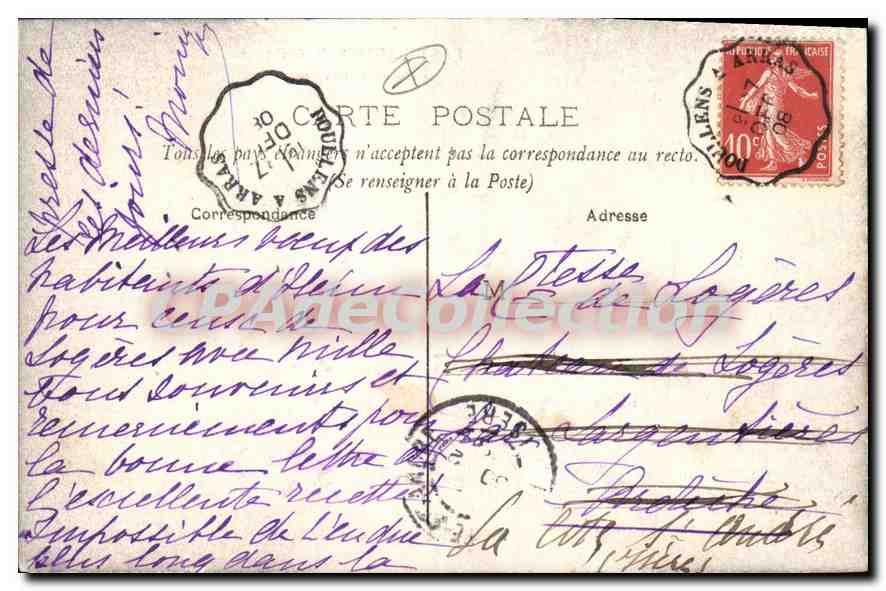 CARTE POSTALE
Tous les pays étrangers n'acceptent pas la correspondance au recto.
(Se renseigner à la Poste)
Correspondance
Adresse
REPUBLIQUE FRANÇAISE
10c
POSTES
DOULLENS A ARRAS
7
DEC
08
DOULLENS A ARRAS
7
DEC
08
ISERE
CPAdeCollection
M
La Ctesse
de Logères
Château de Logères
par Largentière
Ardèche
La Côte St André
Isère
Les meilleurs voeux des
habitants d'
pour ceux de
Logères avec mille
bons souvenirs et
remerciements pour
la bonne lettre et
l'excellente recette
Impossible de
plus long dans la
presse de
ces derniers
jours!